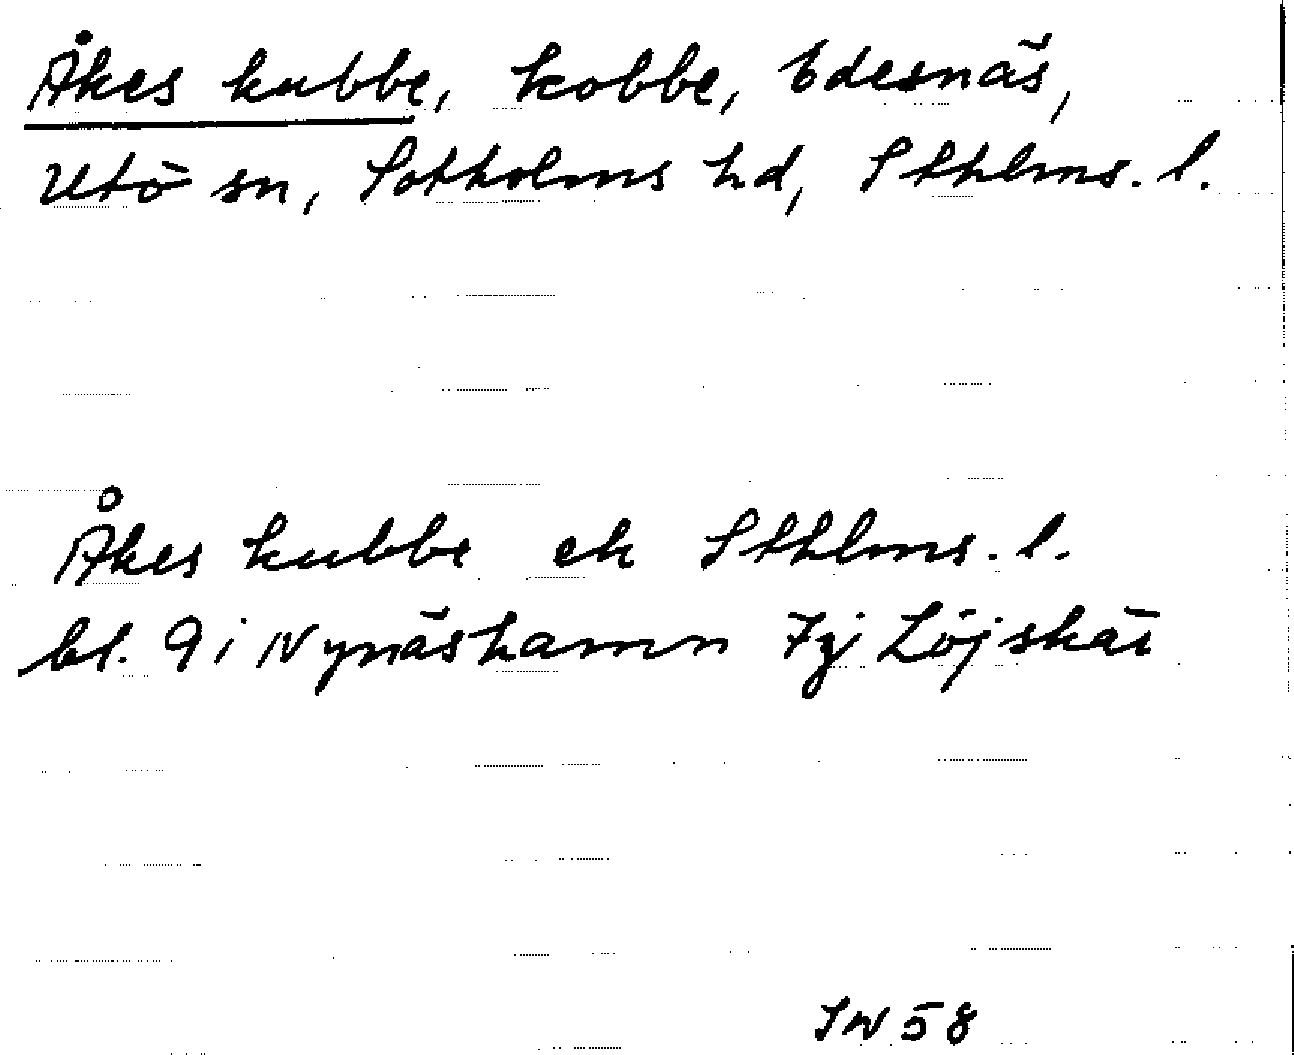 Åkes kubbe, kobbe, Edesnäs,
Utö sn, Sotholms hd, Sthlms. l.
Åkes kubbe ek Sthlms. l.
bl. 9 i Nynäshamn 7j Löjskär
58